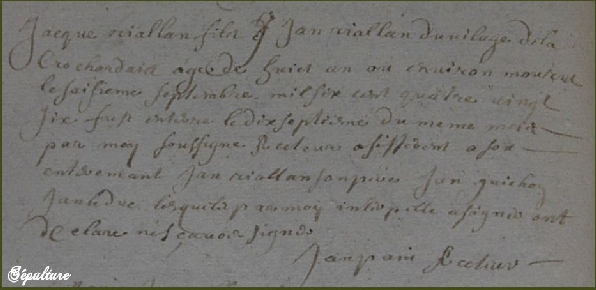 Jacque riallan fils de Jan riallan du vilage de la
Crochardais agé de huict an ou environ mourut
le saisieme septembre mil six cent quatre vingt
six fust enterre le dix septieme du meme mois
par moy soussigne Recteur asisterent a son
enterement Jan riallan son pere Jan guichon
Jan leduc lesquels par moy interpelle a signer ont
declare ne sçavoir signer
Jan pain Recteur
Sépulture